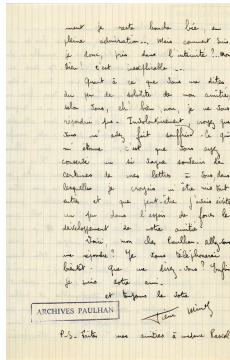 ment je reste bouche bée en
pleine admiration... Mais comment suis-
je donc, pris dans l'intimité ?... Mon
Dieu ! c'est inexplicable...
Quant à ce que vous me dites
du peu de solidité de mon amitié,
selon vous, eh! bien non, je ne vous
répondrai pas. croyez que
vous m'avez fait souffrir. Ce qui
m'étonne c'est que vous ayez
conservé un si vague souvenir de
certaines de mes lettres à vous, dans
lesquelles je croyais m'être mis tout
entier et que peut-être j'avais écrites
un peu dans l'espoir de forcer le
développement de votre amitié.
Voici, mon cher Paulhan. allez-vous
me répondre ? Je vous téléphonerai
bientôt. Que me direz-vous ? Enfin
je suis votre ami.
et toujours le vôtre
ARCHIVES PAULHAN
P.S. mes amitiés à madame Pascal